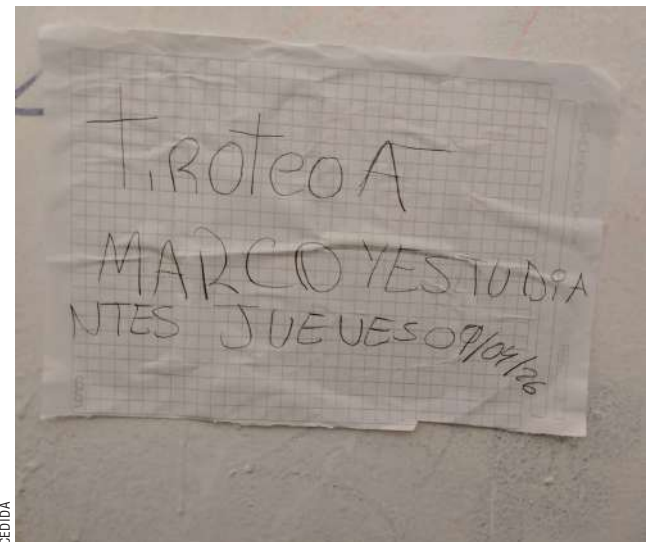 TiROTeO A
MARCO Y ESTUDiA
NTES JUEVES 09/04/26
CEDIDA